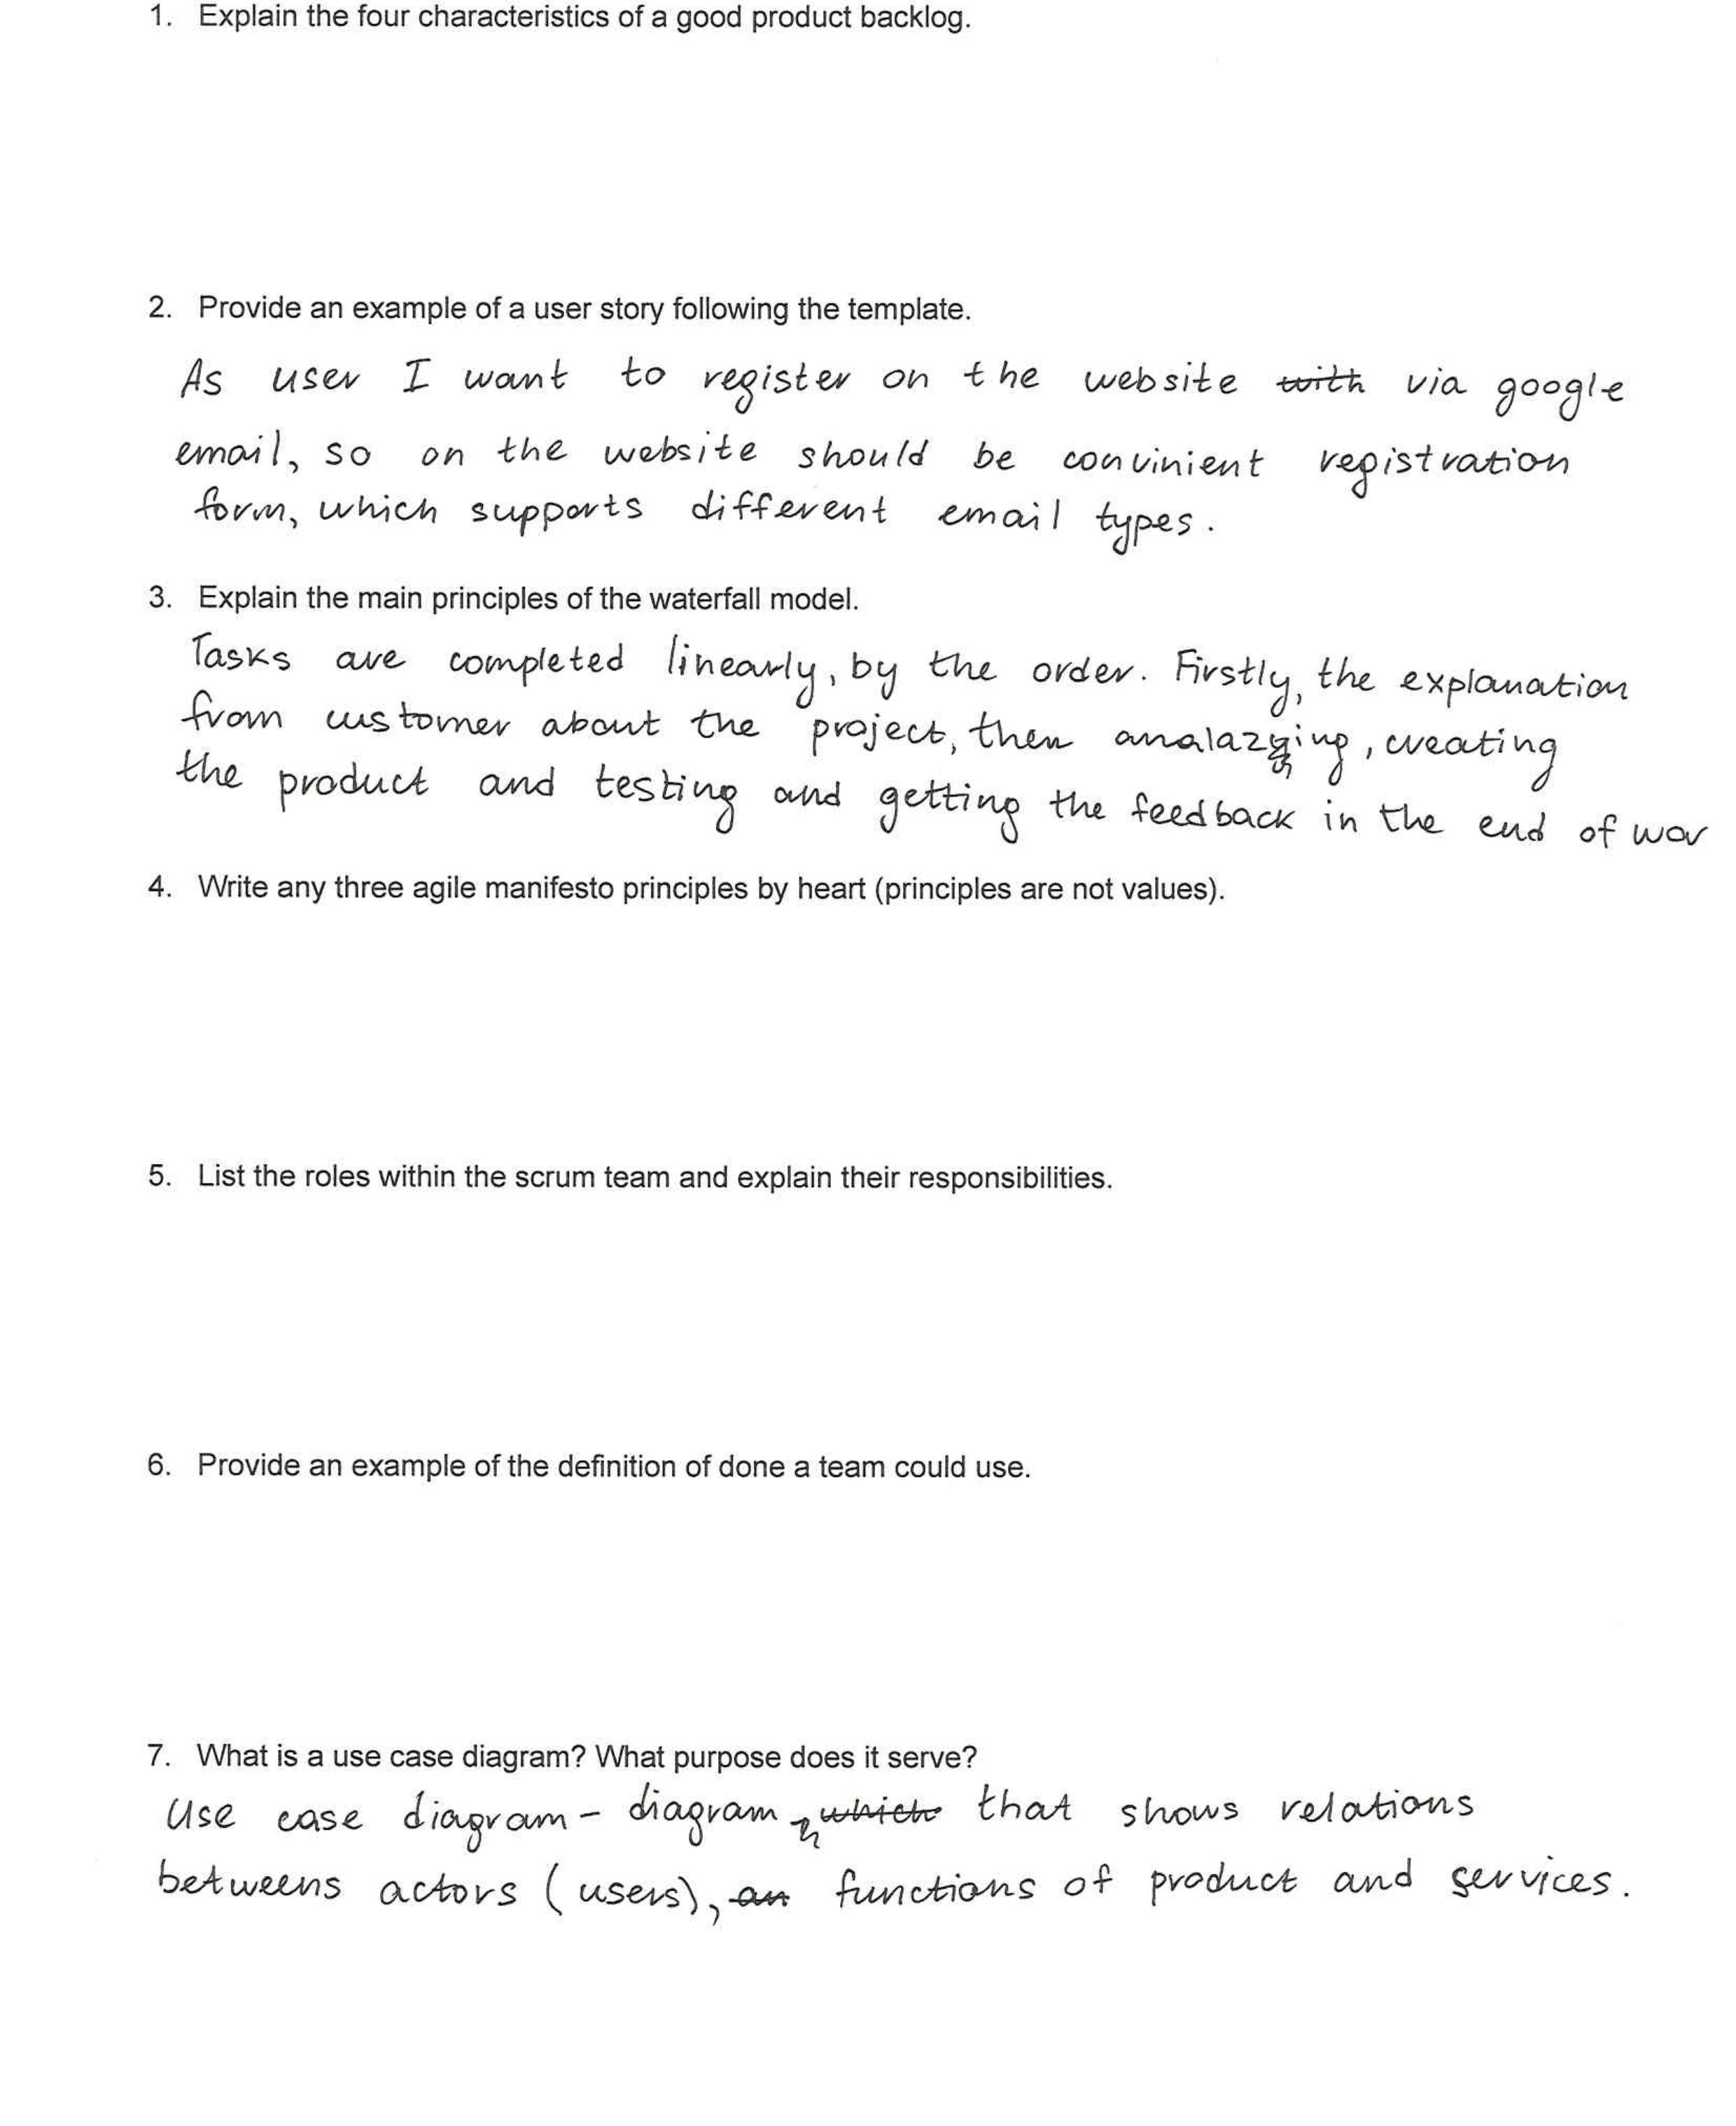 1. Explain the four characteristics of a good product backlog.
2. Provide an example of a user story following the template.
As user I want to register on the website with via google
email, so on the website should be convinient registration
form, which supports different email types.
3. Explain the main principles of the waterfall model.
Tasks are completed linearly, by the order. Firstly, the explanation
from customer about the project, then analazying, creating
the product and testing and getting the feedback in the end of wor
4. Write any three agile manifesto principles by heart (principles are not values).
5. List the roles within the scrum team and explain their responsibilities.
6. Provide an example of the definition of done a team could use.
7. What is a use case diagram? What purpose does it serve?
Use case diagram - diagram, which that shows relations
betweens actors (users), an functions of product and services.